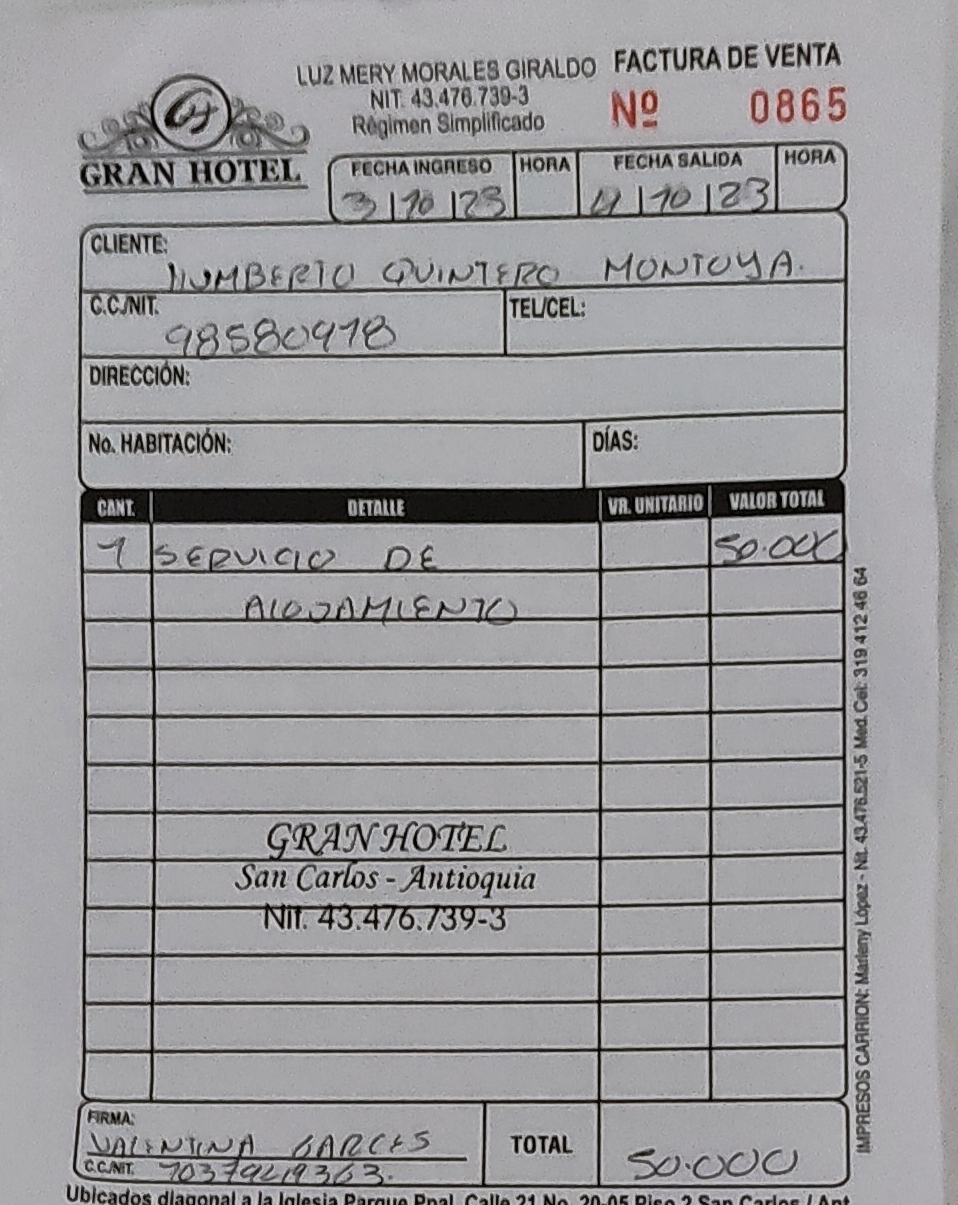 LUZ MERY MORALES GIRALDO FACTURA DE VENTA
NIT. 43.476.739-3
Régimen Simplificado
Nº 0865
GRAN HOTEL
FECHA INGRESO HORA FECHA SALIDA HORA
3/10/23 4/10/23
CLIENTE:
HUMBERTO QUINTERO MONTOYA.
C.C./NIT. TEL/CEL:
98580978
DIRECCIÓN:
No. HABITACIÓN: DÍAS:
CANT. DETALLE VR. UNITARIO VALOR TOTAL
1 SERVICIO DE 50.000
ALOJAMIENTO
GRAN HOTEL
San Carlos - Antioquia
Nit. 43.476.739-3
FIRMA:
VALENTINA GARCES
C.C./NIT.
TOTAL 50.000
Ubicados diagonal a la Iglesia Parque Ppal. Calle 21 No. 20-05 Piso 2 San Carlos / Ant
IMPRESOS CARRION: Marleny López - Nit. 43.476.521-5 Med. Cel: 319 412 46 64